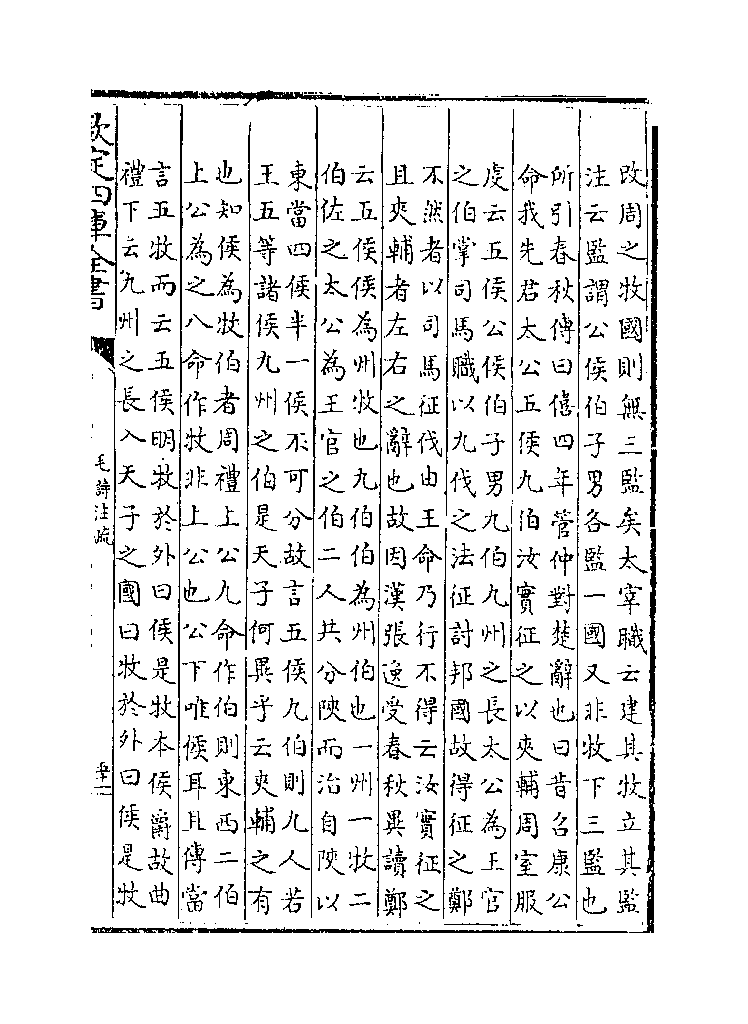 改周之牧國則無三監矣太宰職云建其牧立其監
注云監謂公侯伯子男各監一國又非牧下三監也
所引春秋傳曰僖四年管仲對楚辭也曰昔召康公
命我先君太公五侯九伯汝實征之以夾輔周室服
虔云五侯公侯伯子男九伯九州之長太公為王官
之伯掌司馬職以九伐之法征討邦國故得征之鄭
不然者以司馬征伐由王命乃行不得云汝實征之
且夾輔者左右之辭也故因漢張逸受春秋異讀鄭
云五侯侯為州牧也九伯伯為州伯也一州一牧二
伯佐之太公為王官之伯二人共分陝而治自陝以
東當四侯半一侯不可分故言五侯九伯則九人若
王五等諸侯九州之伯是天子何異乎云夾輔之有
也知侯為牧伯者周禮上公九命作伯則東西二伯
上公為之八命作牧非上公也公下唯侯耳且傳當
言五牧而云五侯明牧於外曰侯是牧本侯爵故曲
禮下云九州之長入天子之國曰牧於外曰侯是牧
欽定四庫全書
毛詩注疏